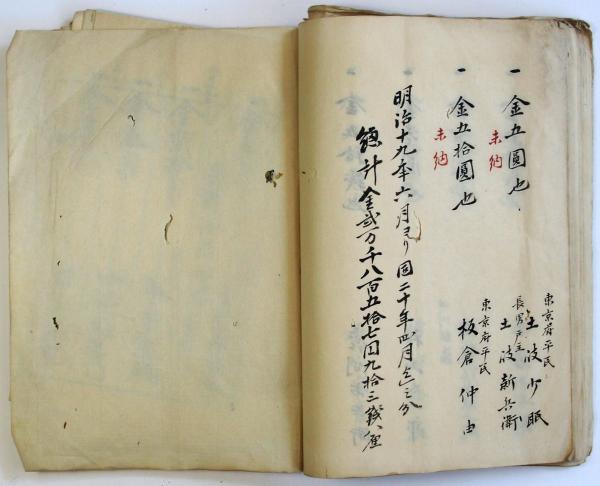 一 金五圓也
未納
東京府平民
土波少眠
長男戸主
土波新兵衛
一 金五拾圓也
未納
東京府平民
板倉仲由
明治十九年六月ヨリ同二十年四月迄之分
總計金貳万千八百五拾七円九拾三銭八厘